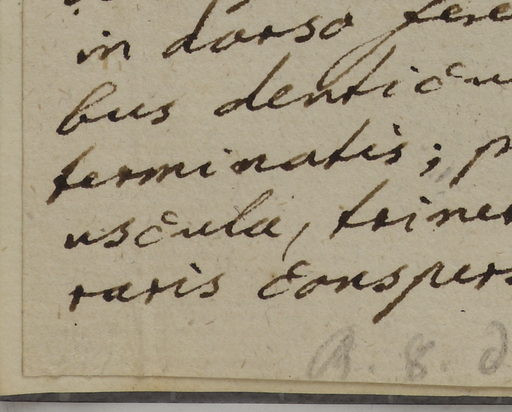 in dorso fere
bus denticu
terminatis; p
uscula, triner
raris conspers
A. 8. d